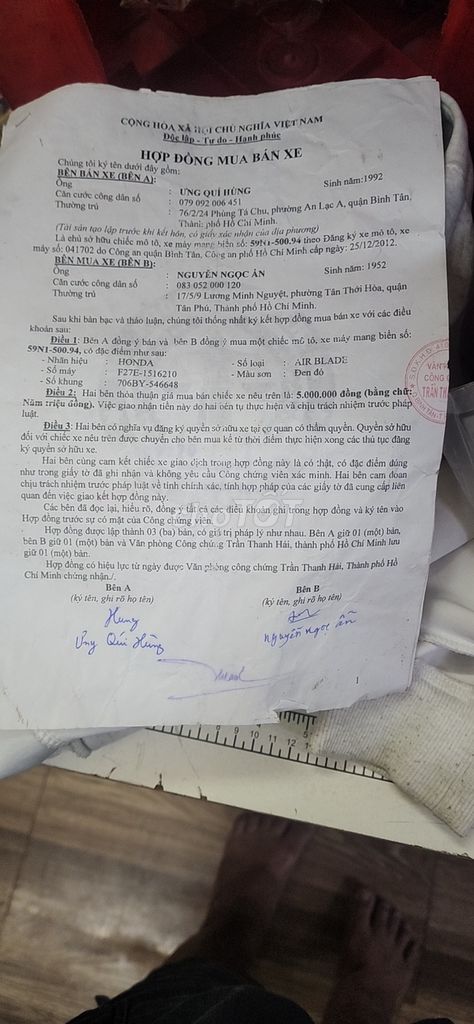 CỘNG HÒA XÃ HỘI CHỦ NGHĨA VIỆT NAM
Độc lập - Tự do - Hạnh phúc
HỢP ĐỒNG MUA BÁN XE
Chúng tôi ký tên dưới đây gồm:
BÊN BÁN XE (BÊN A):
Ông : ƯNG QUÍ HÙNG Sinh năm:1992
Căn cước công dân số : 079 092 006 451
Thường trú : 76/2/24 Phùng Tá Chu, phường An Lạc A, quận Bình Tân, Thành phố Hồ Chí Minh.
(Tài sản tạo lập trước khi kết hôn, có giấy xác nhận của địa phương)
Là chủ sở hữu chiếc mô tô, xe máy mang biển số: 59N1-500.94 theo Đăng ký xe mô tô, xe
máy số: 041702 do Công an quận Bình Tân, Công an phố Hồ Chí Minh cấp ngày: 25/12/2012.
BÊN MUA XE (BÊN B):
Ông : NGUYỄN NGỌC ẨN Sinh năm: 1952
Căn cước công dân số : 083 052 000 120
Thường trú : 17/5/9 Lương Minh Nguyệt, phường Tân Thới Hòa, quận
Tân Phú, Thành phố Hồ Chí Minh.
Sau khi bàn bạc và thảo luận, chúng tôi thống nhất ký kết hợp đồng mua bán xe với các điều
khoản sau:
Điều 1: Bên A đồng ý bán và bên B đồng ý mua một chiếc mô tô, xe máy mang biển số:
59N1-500.94, có đặc điểm như sau:
- Nhãn hiệu : HONDA - Số loại : AIR BLADE
- Số máy : F27E-1516210 - Màu sơn : Đen đỏ
- Số khung : 706BY-546648
Điều 2: Hai bên thỏa thuận giá mua bán chiếc xe nêu trên là: 5.000.000 đồng (bằng chữ:
Năm triệu đồng). Việc giao nhận tiền này do hai bên tự thực hiện và chịu trách nhiệm trước pháp
luật.
Điều 3: Hai bên có nghĩa vụ đăng ký quyền sở hữu xe tại cơ quan có thẩm quyền. Quyền sở hữu
đối với chiếc xe nêu trên được chuyển cho bên mua kể từ thời điểm thực hiện xong các thủ tục đăng
ký quyền sở hữu xe.
Hai bên cùng cam kết chiếc xe giao dịch trong hợp đồng này là có thật, có đặc điểm đúng
như trong giấy tờ đã ghi nhận và không yêu cầu Công chứng viên xác minh. Hai bên cam đoan
chịu trách nhiệm trước pháp luật về tính chính xác, tính hợp pháp của các giấy tờ đã cung cấp liên
quan đến việc giao kết hợp đồng này.
Các bên đã đọc lại, hiểu rõ, đồng ý tất cả các điều khoản ghi trong hợp đồng và ký tên vào
Hợp đồng trước sự có mặt của Công chứng viên.
Hợp đồng được lập thành 03 (ba) bản, có giá trị pháp lý như nhau. Bên A giữ 01 (một) bản,
bên B giữ 01 (một) bản và Văn phòng Công chứng Trần Thanh Hải, thành phố Hồ Chí Minh lưu
giữ 01 (một) bản.
Hợp đồng có hiệu lực từ ngày được Văn phòng công chứng Trần Thanh Hải, Thành phố Hồ
Chí Minh chứng nhận./.
Bên A Bên B
(ký tên, ghi rõ họ tên) (ký tên, ghi rõ họ tên)
Hung
Ưng Quí Hùng Nguyễn Ngọc Ẩn
1
VĂN
CÔNG
TRẦN TH
CHỢ TỐT